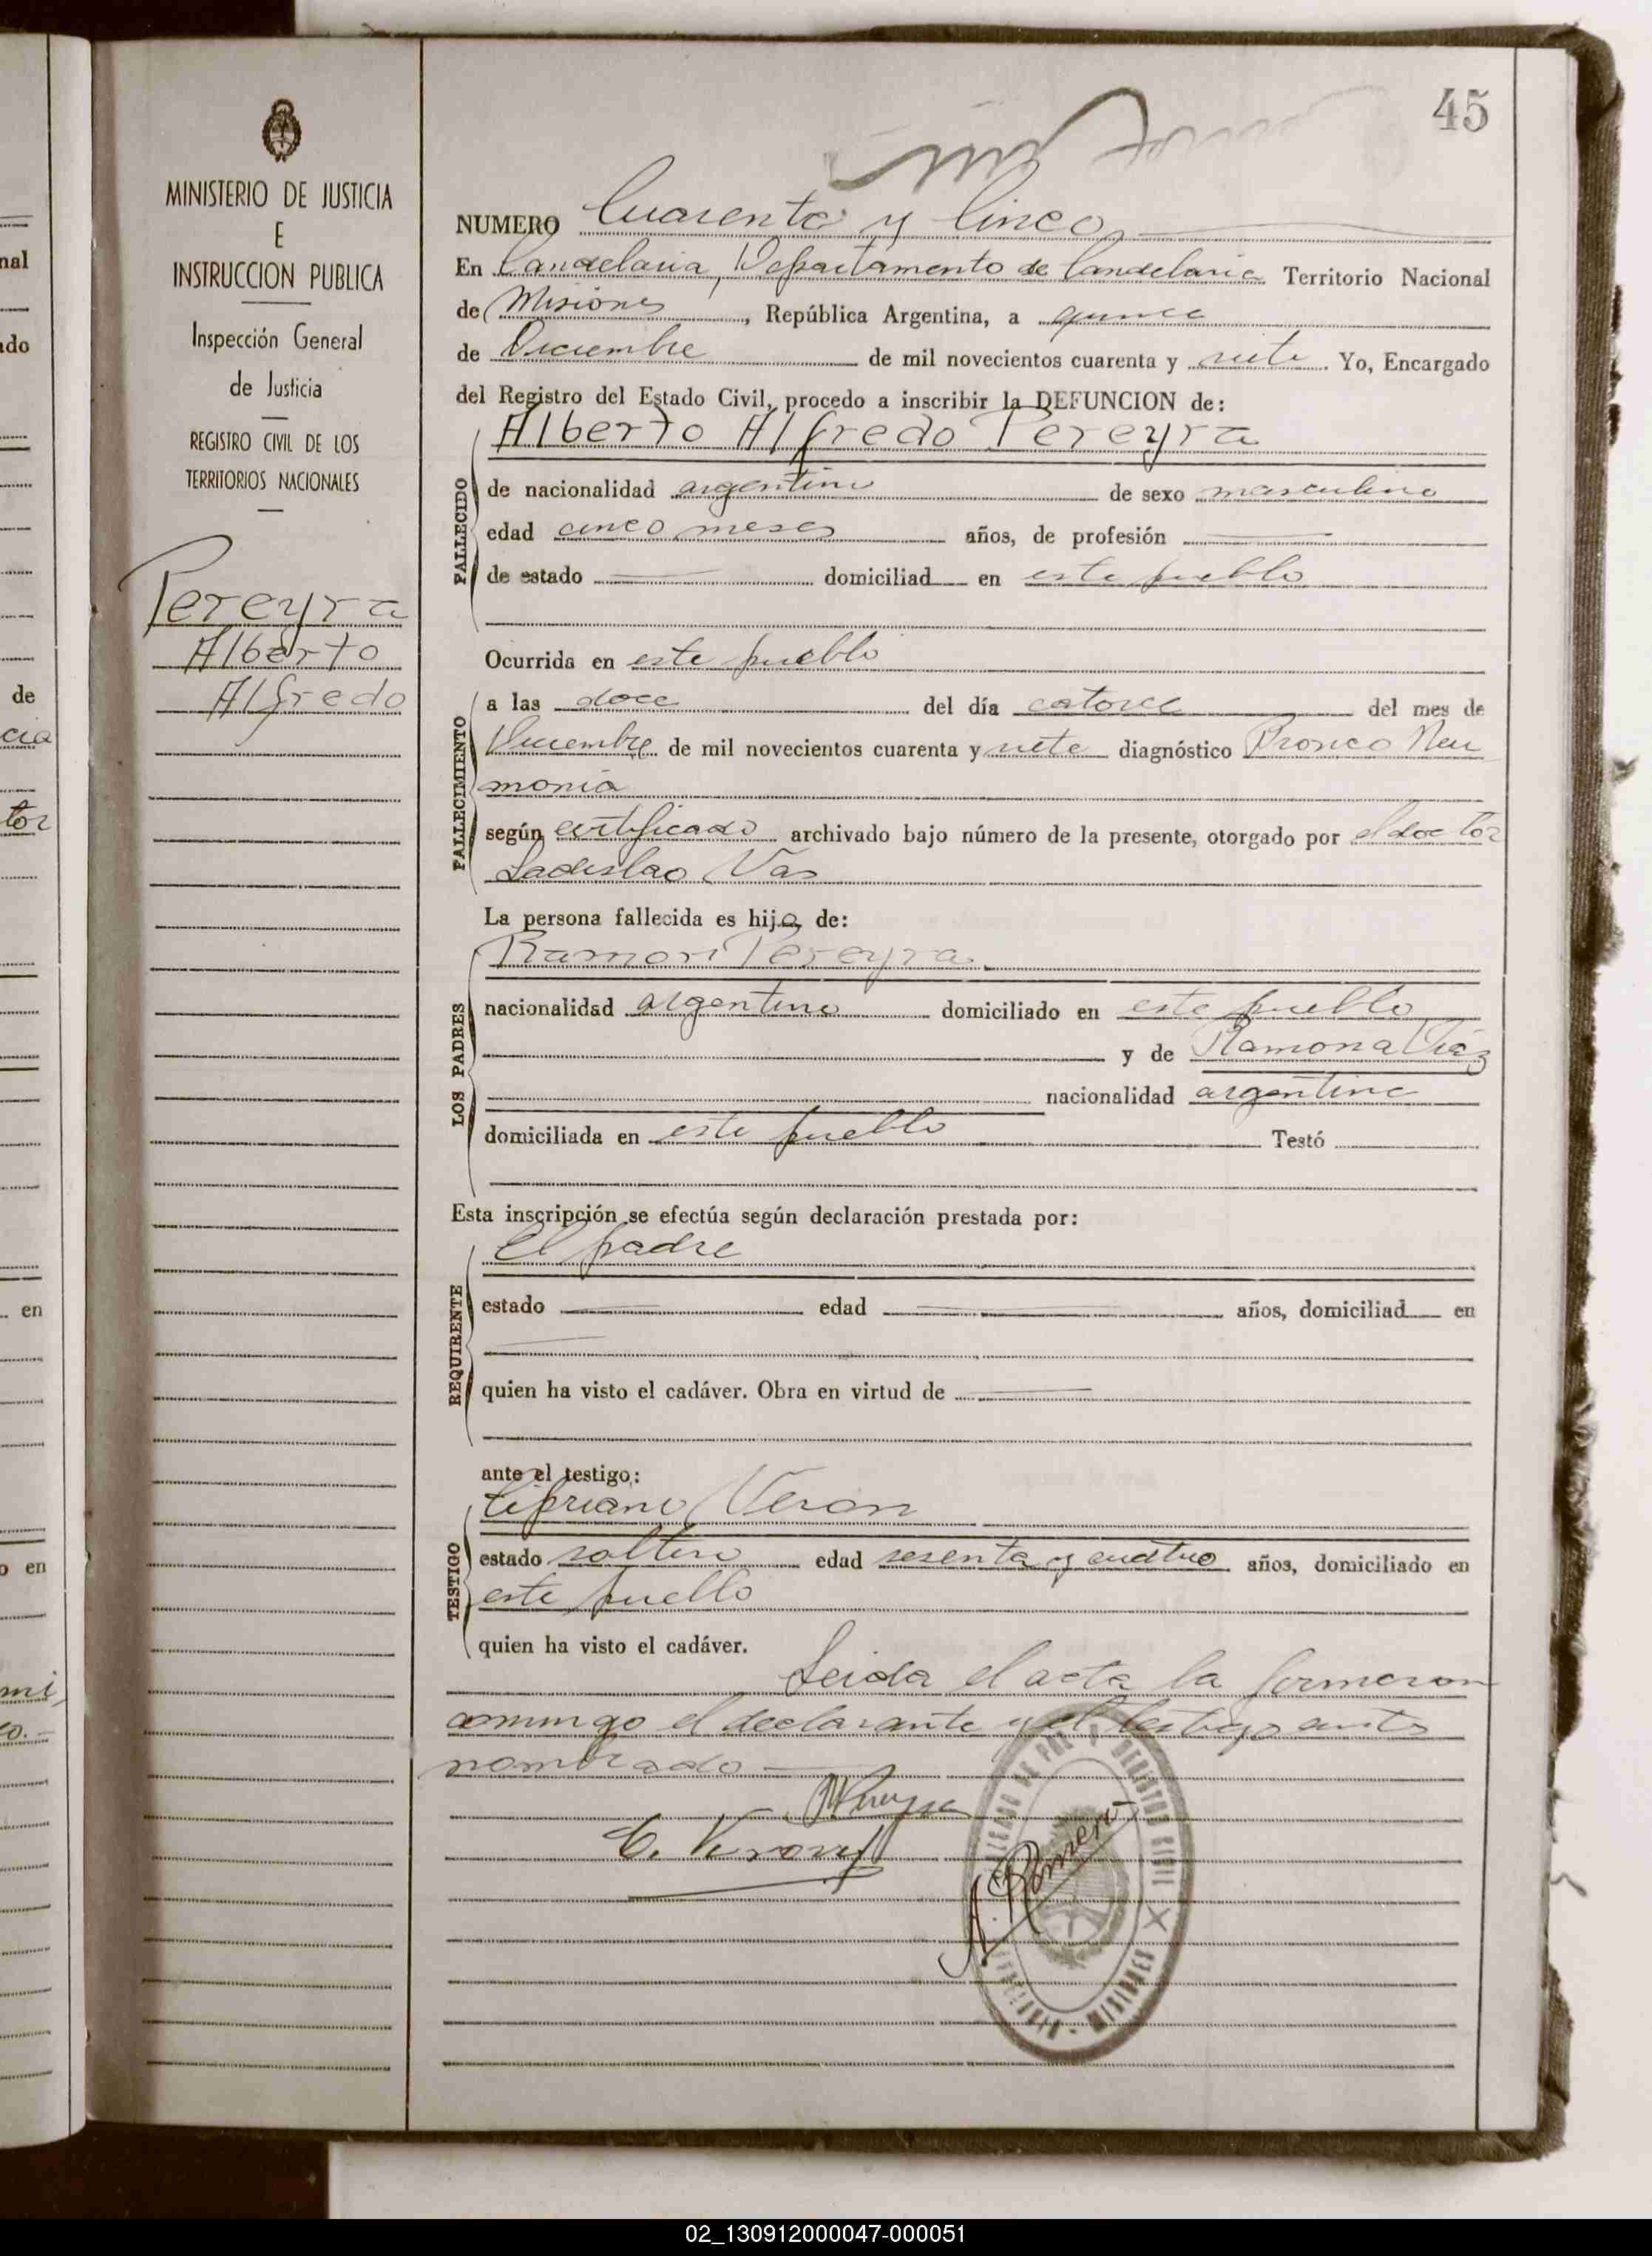 45
MINISTERIO DE JUSTICIA
E
INSTRUCCION PUBLICA
Inspección General
de Justicia
REGISTRO CIVIL DE LOS
TERRITORIOS NACIONALES
Pereyra
Alberto
Alfredo
NUMERO Cuarenta y Cinco
En Candelaria, Departamento de Candelaria Territorio Nacional
de Misiones, República Argentina, a quince
de Diciembre de mil novecientos cuarenta y siete. Yo, Encargado
del Registro del Estado Civil, procedo a inscribir la DEFUNCION de:
Alberto Alfredo Pereyra
FALLECIDO
de nacionalidad argentino de sexo masculino
edad cinco meses años, de profesión
de estado domiciliad en este pueblo
Ocurrida en este pueblo
FALLECIMIENTO
a las doce del día catorce del mes de
Diciembre de mil novecientos cuarenta y siete diagnóstico Bronco Neu
monia
según certificado archivado bajo número de la presente, otorgado por el doctor
Ladislao Vas
La persona fallecida es hijo de:
LOS PADRES
Ramon Pereyra
nacionalidad argentino domiciliado en este pueblo
y de Ramona
nacionalidad argentina
domiciliada en este pueblo Testó
Esta inscripción se efectúa según declaración prestada por:
REQUIRENTE
El padre
estado edad años, domiciliad en
quien ha visto el cadáver. Obra en virtud de
ante el testigo:
TESTIGO
Cipriano Veron
estado soltero edad sesenta y cuatro años, domiciliado en
este pueblo
quien ha visto el cadáver.
Leida el acta la firmaron
conmigo el declarante y el testigo ante
nombrado
C. Veron
A. Romero
MISIONES
02_130912000047-000051